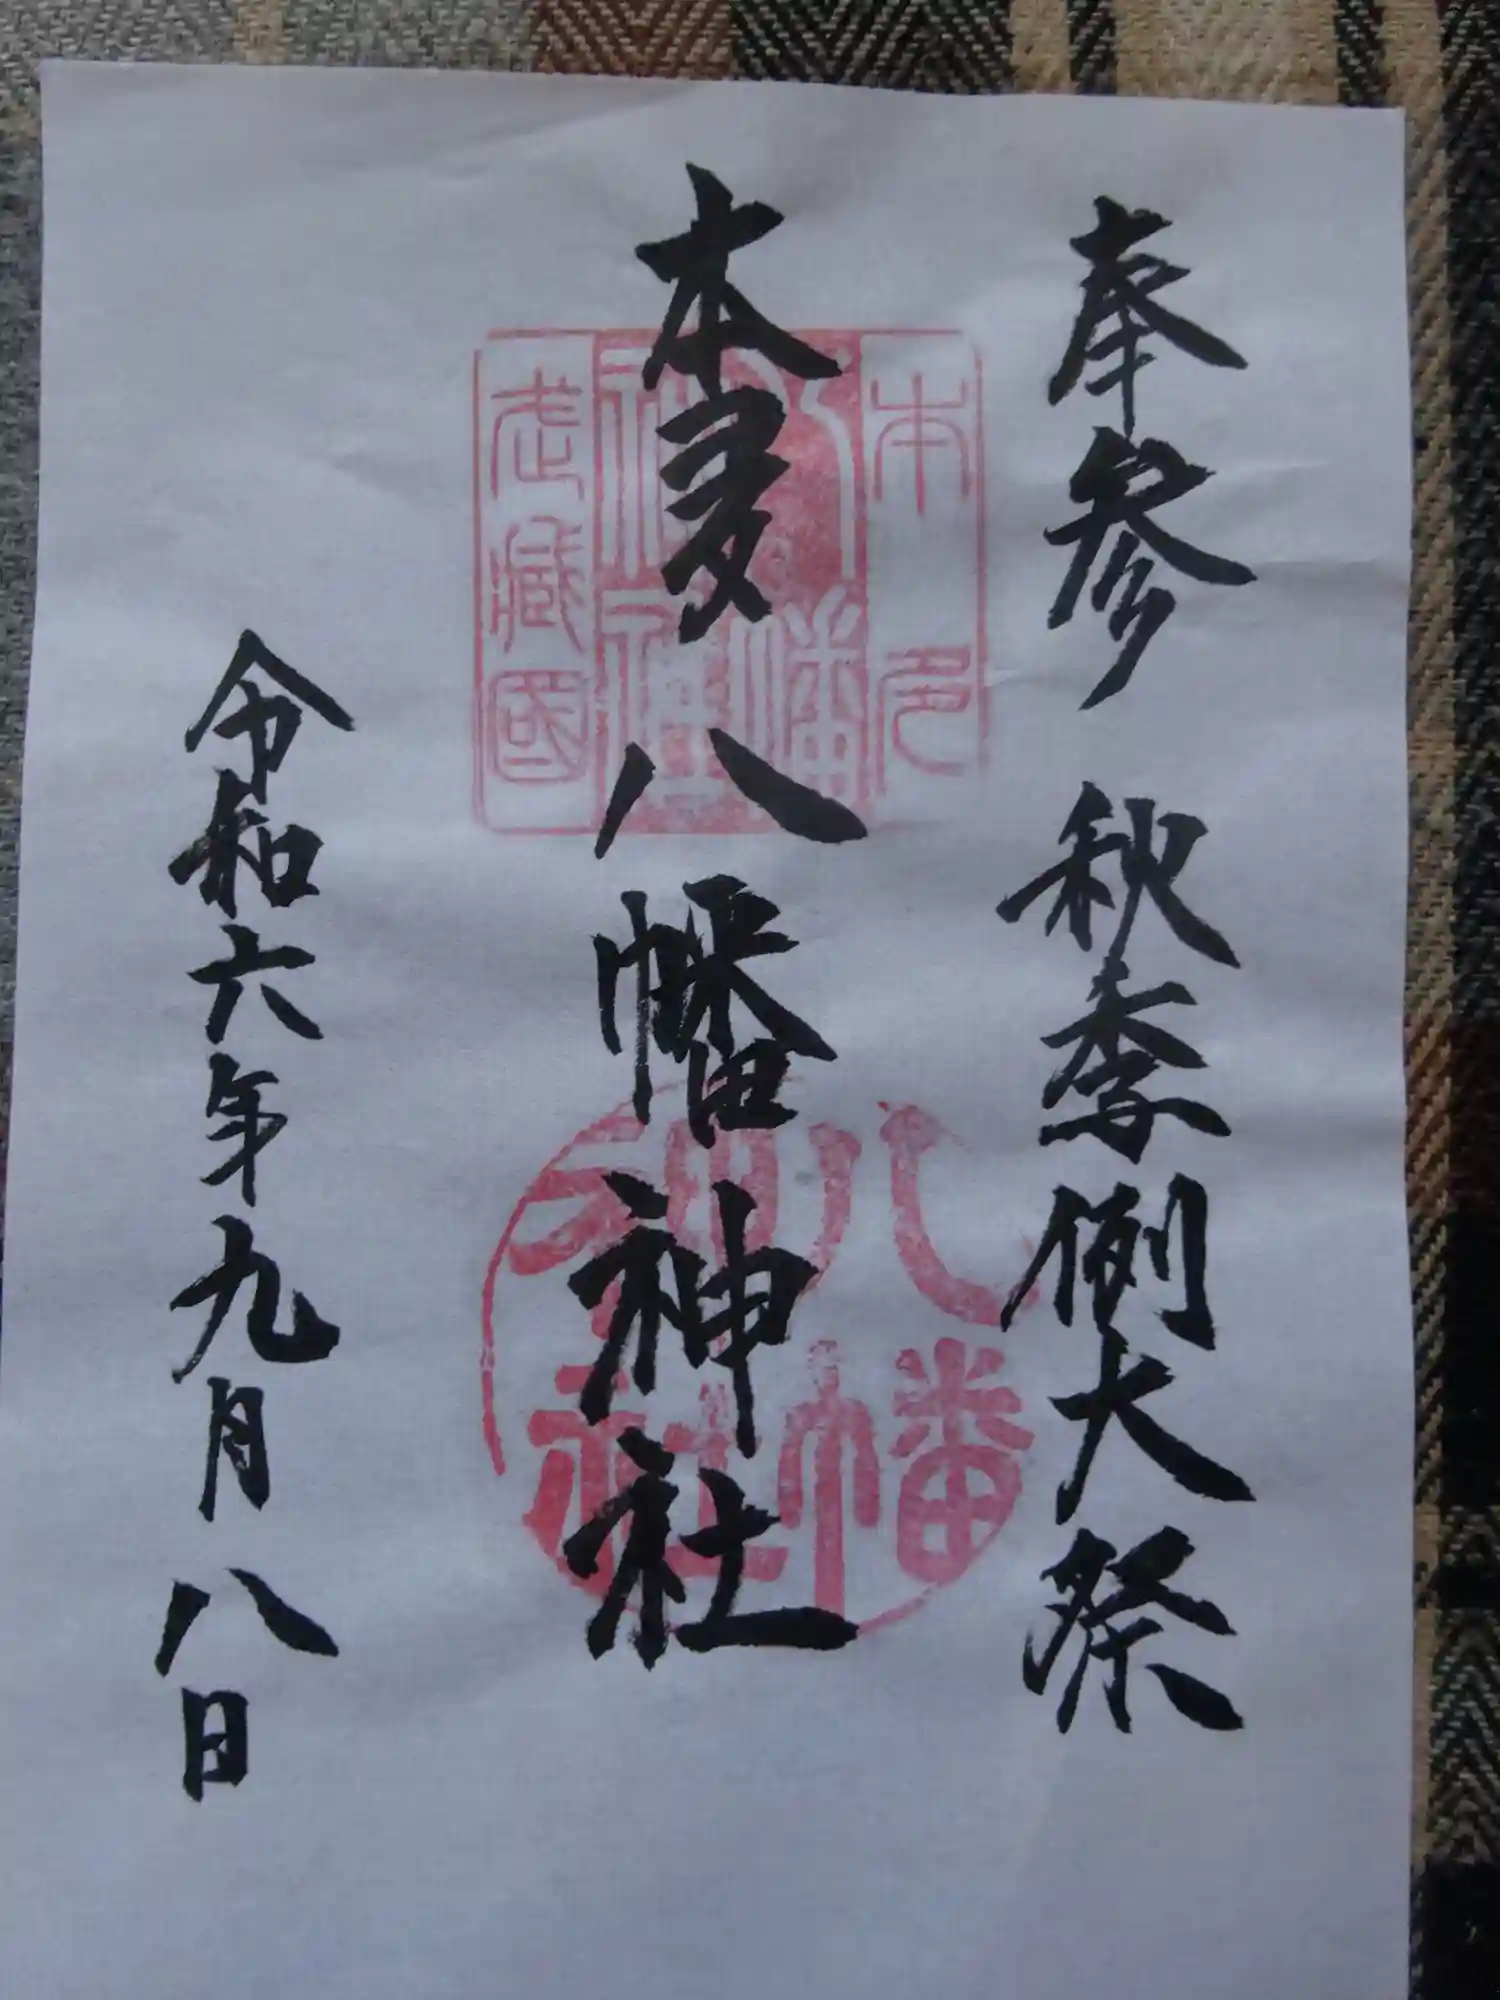 奉参 秋季例大祭
本多八幡神社
令和六年九月八日
本多
八幡
武蔵國
八幡
神社